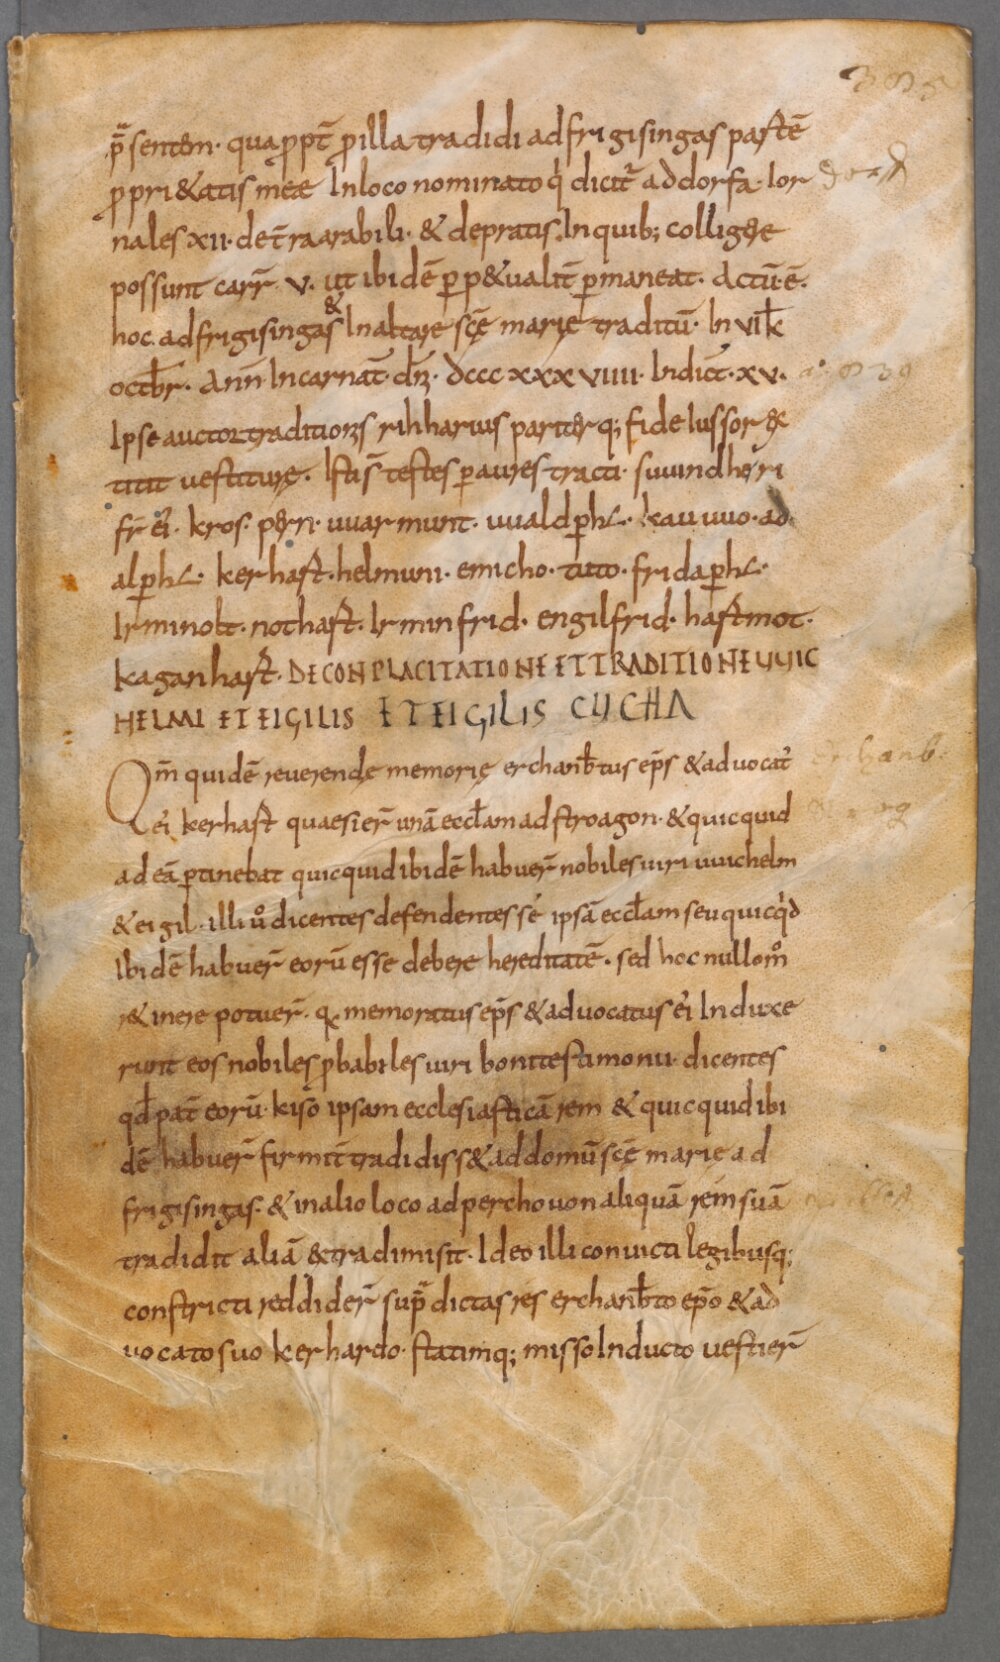 305
p̄sentem· quapropt̄ pro illa tradidi ad frigisingas partē
propri&atis meae In loco nominato q' dicit̄ ad dorfa· Ior
dorff
nales xii· de t̄ra arabili· & de pratis· In quib; colligere
possunt carr̄ v· ut ibidē perp&ualit̄ permaneat· Actū ē·
hoc ad frigisingas & In altare scē marię traditū· In vi kł
octb̄r· Ann̄ Incarnat̄· dn̄i· dccc xxx viiii· Indict̄· xv·
a° 839
Ipse auctor traditionis rihharius pariterq; fideiussor &
titit uestiturę· Istis testes per aures tracti· suuindheri
fr̄ ei· kros· pern· uuarmunt· uualdperht· kauuuo· ad
alperht· kerhaft· helmuni· emicho· tuto· fridaperht·
Irminolt· nothaft· Irminfrid· engilfrid· haftmot·
kaganhaft· DE CONPLACITATIONE ET TRADITIONE UUIC
HELMI ET EIGILIS ET EIGILIS CUCHA
Qm̄ quidē reuerendę memorię erchanb̄tus ep̄s & aduocat'
erchanb.
ei kerhaft quaesier̄ unā eccłam ad stroagon· & quicquid
ad eā pertinebat quicquid ibidē habuer̄ nobiles uiri uuichelm
& eigil· illi u° dicentes defendentes sé ipsā eccłam seu quicq'd
Ibidē habuer̄ eorū esse debere hereditatē· sed hoc nullom°
r&inere potuer̄· q; memoratus ep̄s & aduocatus ei Induxe
runt eos nobiles probabiles uiri boni testimonii· dicentes
qd̄ pat̄ eorū· kiso ipsam ecclesiasticā rem & quicquid ibi
dē habuer̄ firmit̄ tradidiss& ad domū scę marię ad
frigisingas· & in alio loco ad perchouon aliquā rem suā
tradidit aliā & tradimisit· Ideo illi conuicti legibusq;
constricti reddider̄ sup̄dictas res erchanb̄to ep̄o & ad
uocato suo kerhardo· statimq; misso Inducto uestier̄